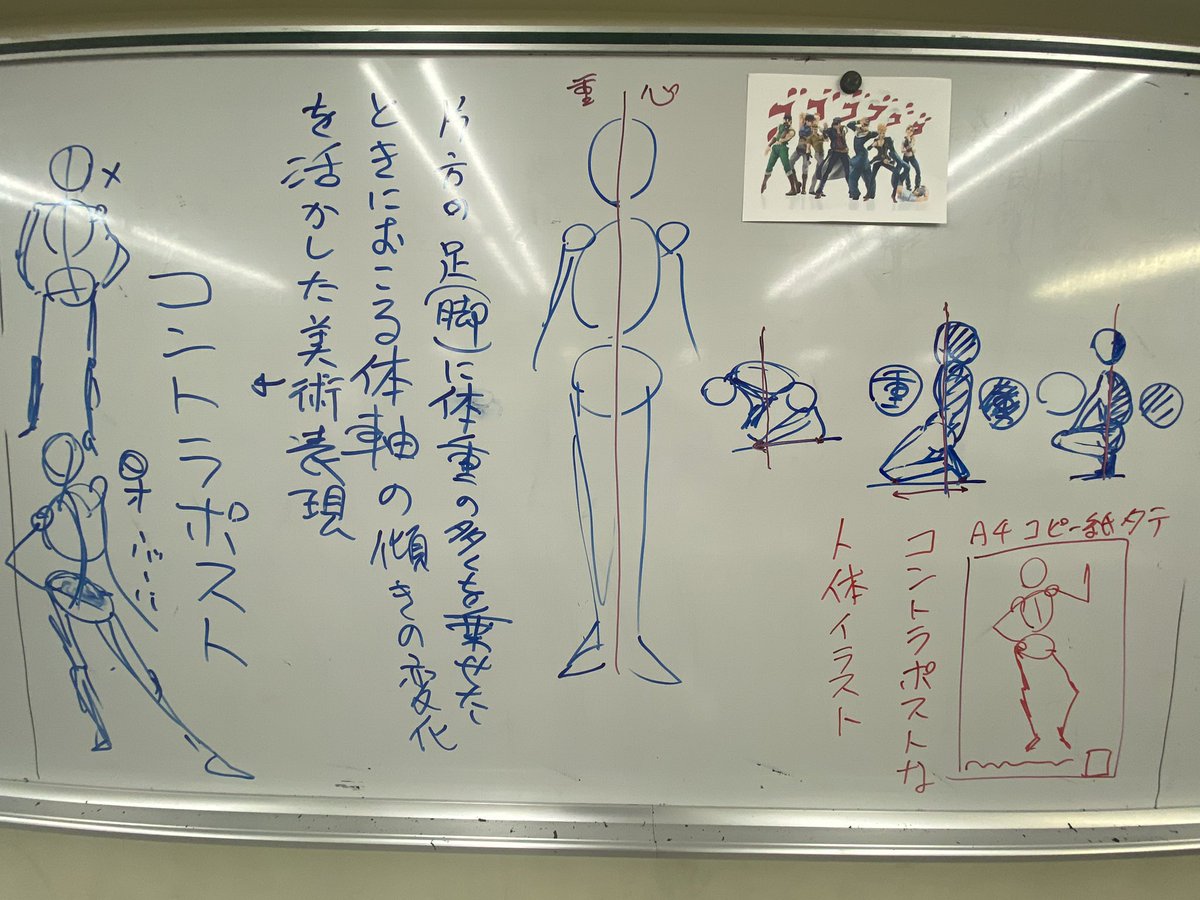 コントラポスト
片方の足(脚)に体重の多くを乗せた
ときにおこる体軸の傾きの変化
を活かした美術表現
重心
ゴゴゴゴゴゴ
重
A4コピー紙タテ
コントラポストな
人体イラスト